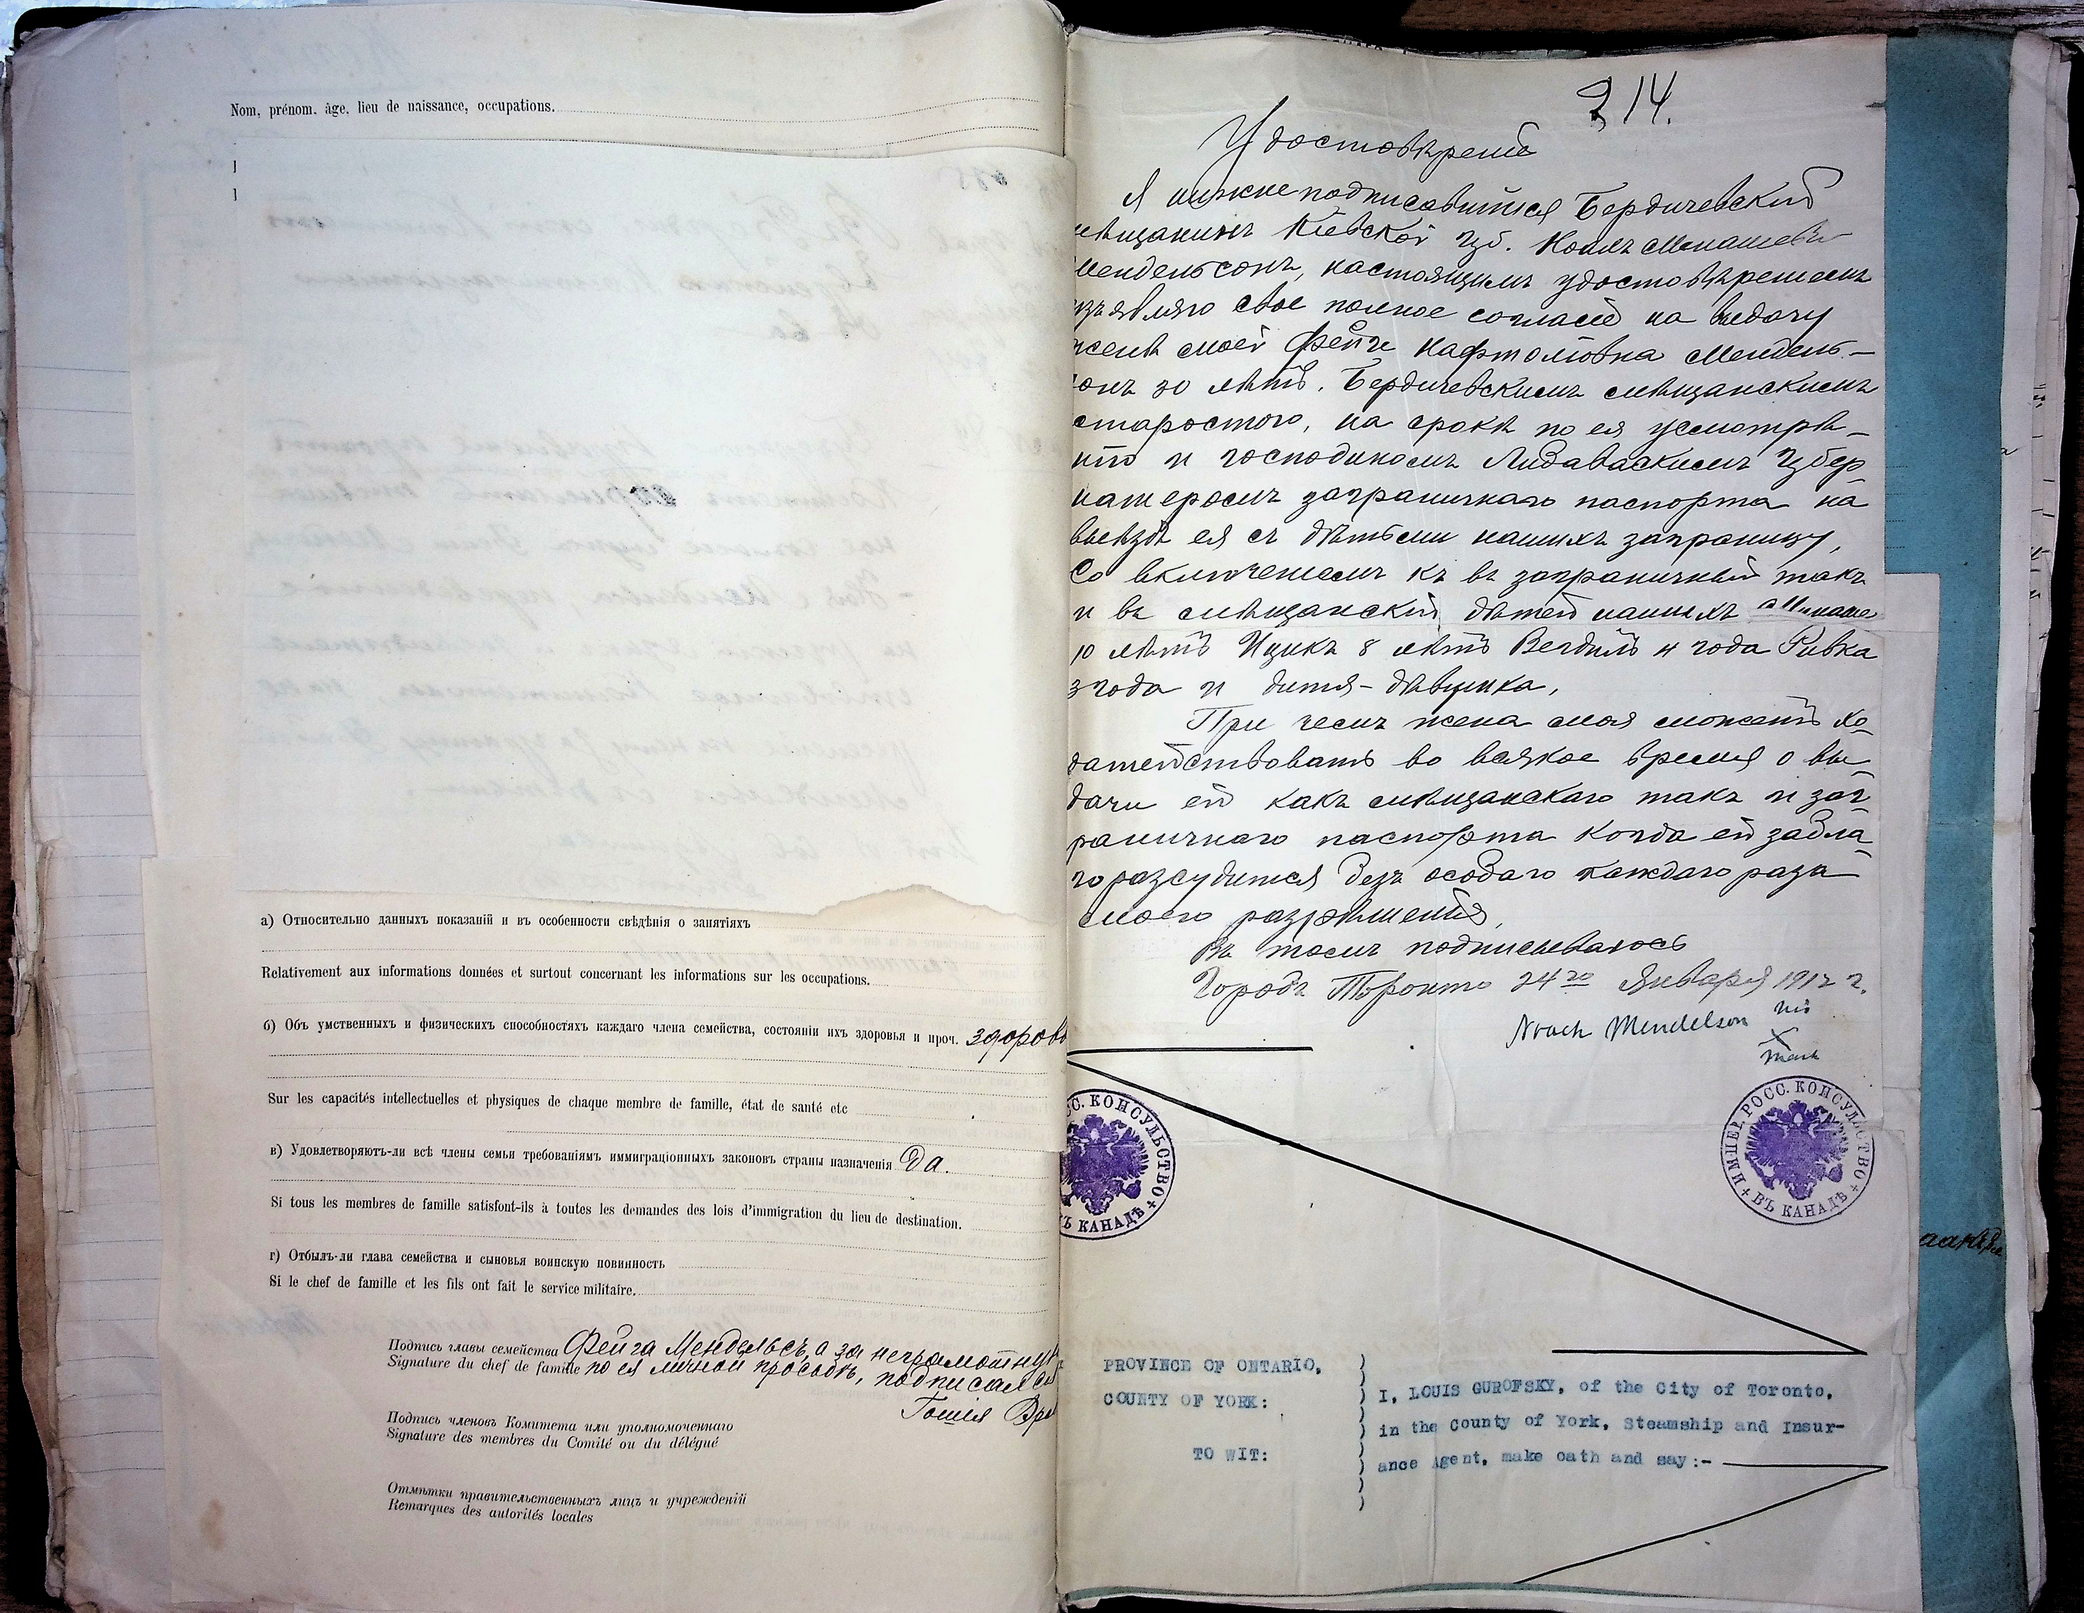 Nom, prénom. âge. lieu de naissance, occupations.
а) Относительно данныхъ показаній и въ особенности свѣдѣнія о занятіяхъ
Relativement aux informations données et surtout concernant les informations sur les occupations.
б) Объ умственныхъ и физическихъ способностяхъ каждаго члена семейства, состояніи ихъ здоровья и проч. здоровы
Sur les capacités intellectuelles et physiques de chaque membre de famille, état de santé etc
в) Удовлетворяютъ-ли всѣ члены семьи требованіямъ иммиграціонныхъ законовъ страны назначенія да.
Si tous les membres de famille satisfont-ils à toutes les demandes des lois d'immigration du lieu de destination.
г) Отбылъ-ли глава семейства и сыновья воинскую повинность
Si le chef de famille et les fils ont fait le service militaire.
Подпись главы семейства Фейга Мендельсъ, а за неграмотну
Signature du chef de famille по ея личной просьбѣ, подписался
Подпись членовъ Комитета или уполномоченнаго
Signature des membres du Comité ou du délégué
Отмѣтки правительственныхъ лицъ и учрежденій
Remarques des autorités locales
214.
Удостовѣреніе
Я нижеподписавшійся Бердичевскій
мѣщанинъ Кіевской губ. Ноахъ Менашевъ
Мендельсонъ, настоящимъ удостовѣреніемъ
изъявляю свое полное согласіе на выдачу
женѣ моей Фейгѣ Нафтоловна Мендель-
сонъ 30 лѣтъ. Бердичевскимъ мѣщанскимъ
старостою, на срокъ по ея усмотрѣ-
нію и господиномъ Губер-
наторомъ заграничнаго паспорта на
выѣздъ ея съ дѣтьми нашихъ заграницу,
со включеніемъ къ въ заграничный такъ
и въ мѣщанскій, дѣтей нашихъ Менаше
10 лѣтъ Ицикъ 8 лѣтъ 4 года Ривка
3 года и дитя-дѣвушка.
При чемъ жена моя можетъ хо-
датействовать во всякое время о вы-
дачи ей какъ мѣщанскаго такъ и заг-
раничнаго паспорта когда ей забла-
горазсудится безъ особаго каждаго раза
моего разрѣшенія,
Въ томъ подписываюсь
Городъ Торонто 24го Января 1912 г.
Noach Mendelson his
X
mark
СС. КОНСУЛЬСТВО ВЪ КАНАДѢ
ИМПЕР. РОСС. КОНСУЛЬСТВО ВЪ КАНАДѢ
PROVINCE OF ONTARIO,
COUNTY OF YORK:
TO WIT:
I, LOUIS GUROFSKY, of the City of Toronto,
in the County of York, Steamship and Insur-
ance Agent, make oath and say:-